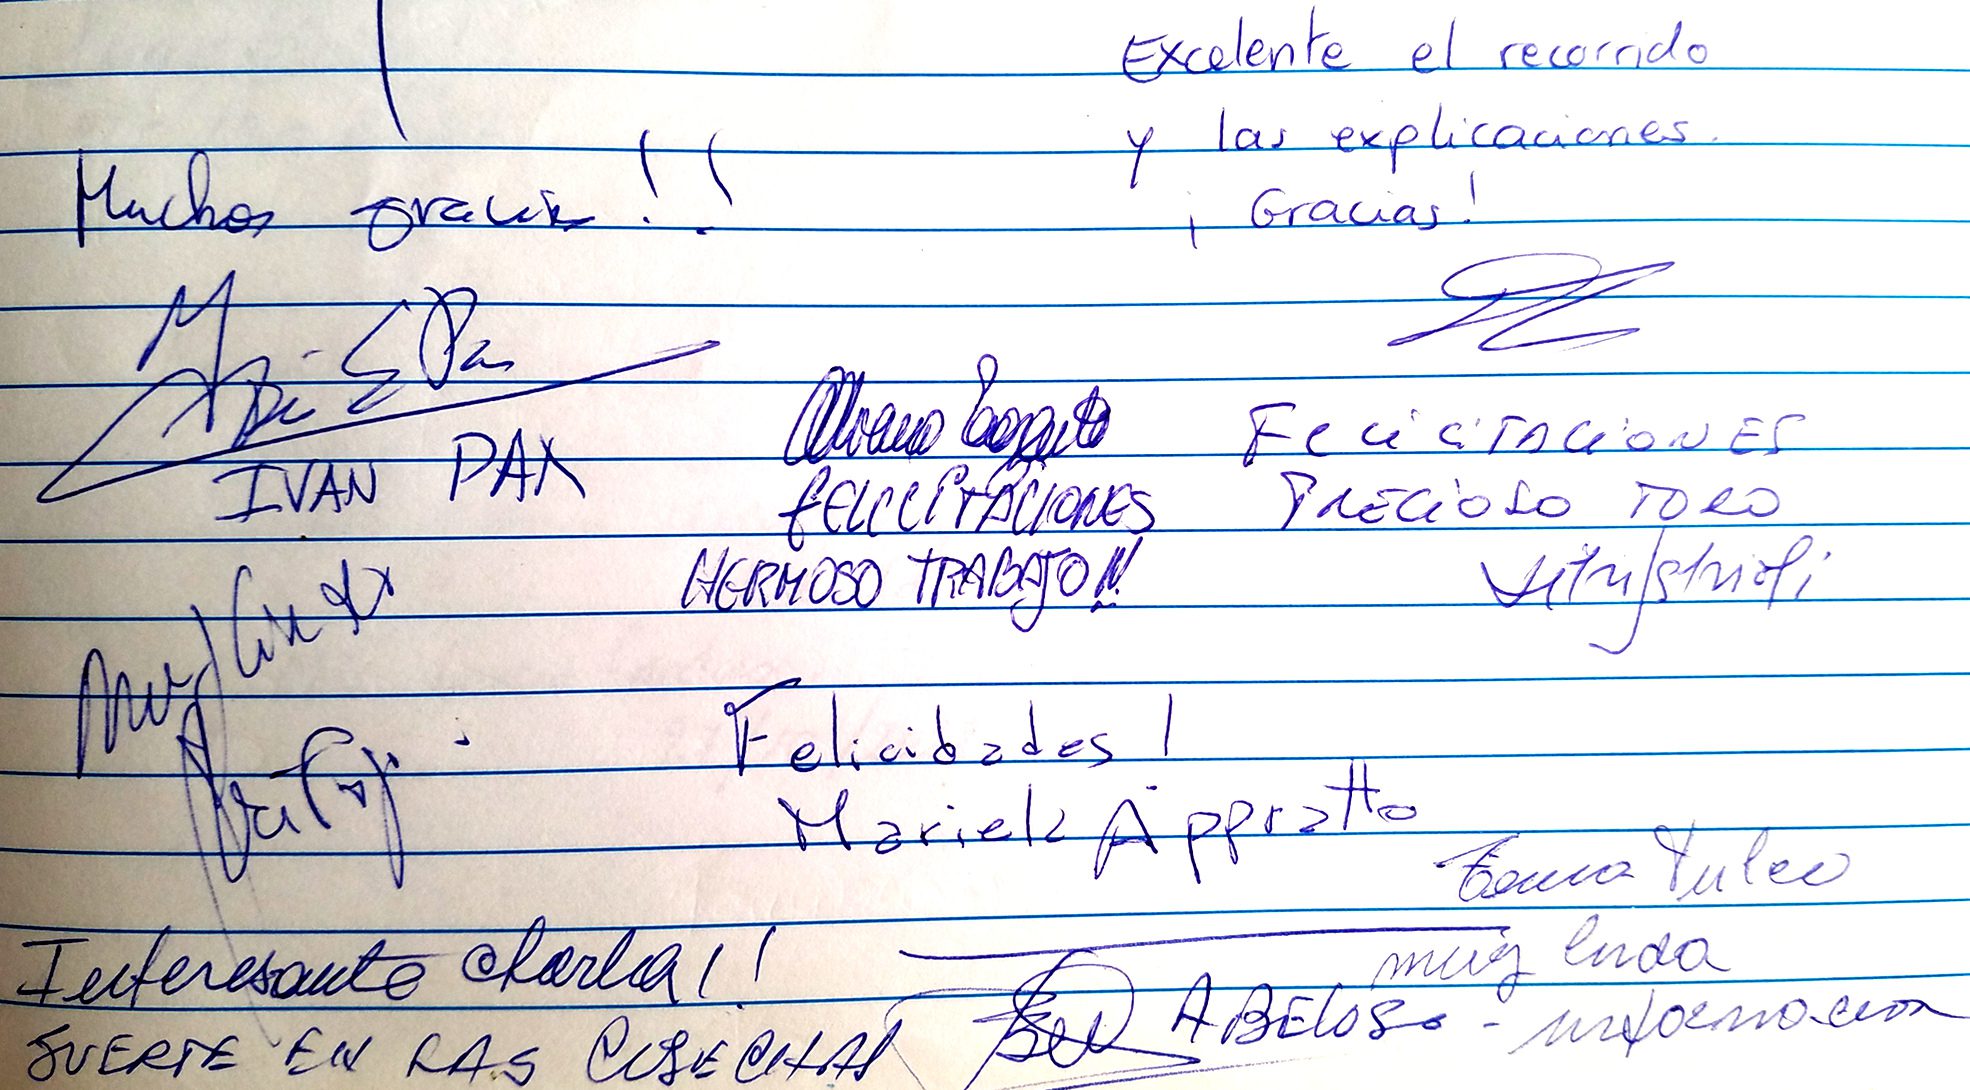 Excelente el recorrido
y las explicaciones.
¡Gracias!
Muchas gracias!!
IVAN PAX
FELICITACIONES
HERMOSO TRABAJO!!
FELICITACIONES
PRECIOSO TORO
Muy lindo
Felicidades!
Mariela Appratto
muy linda
informacion
Interesante charla!!
SUERTE EN LAS COSECHAS
ABELOS